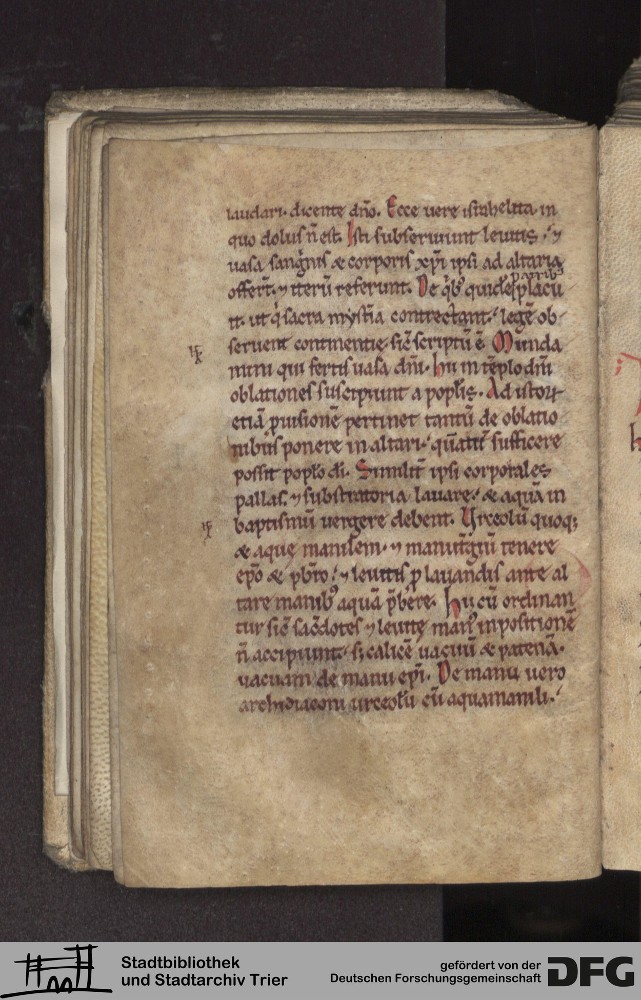 laudari. dicente dño. Ecce vere israhelita in
quo dolus ñ est. Isti subserviunt levitis. ⁊
vasa sanguīs & corporis xp̄i ipsi ad altaria
offerūt. ⁊ iterū referunt. De q̇b; quidē patrib; placu
it. ut q̇ sacra mysťia contrectant. legē ob
servent continentie. sic̄ scriptū ē. Munda
mini qui fertis vasa dñi. Hii in tēplo dñi
oblationes suscipiunt a poplis. Ad istorū
etiā p̱visionē pertinet tantū de oblatio
nibus ponere in altari. quātū sufficere
possit pop̄lo di. Similiť ipsi corporales
pallas. ⁊ substratoria lavare. & aquā in
baptismū vergere debent. Urceolū quoq;
& aque manilem. ⁊ manuťgiū tenere
ep̄o & p̄bro. ⁊ levitis p̱ lavandis ante al
tare manib; aquā p̄bere. Hii cū ordinan
tur sic̄ sac̄dotes ⁊ levite man; inpositionē
ñ accipiunt. s; calicē vacuū & patenā
vacuam de manu ep̄i. De manu vero
archidiaconi urceolū cū aquamanili.
Stadtbibliothek
und Stadtarchiv Trier
gefördert von der
Deutschen Forschungsgemeinschaft
DFG